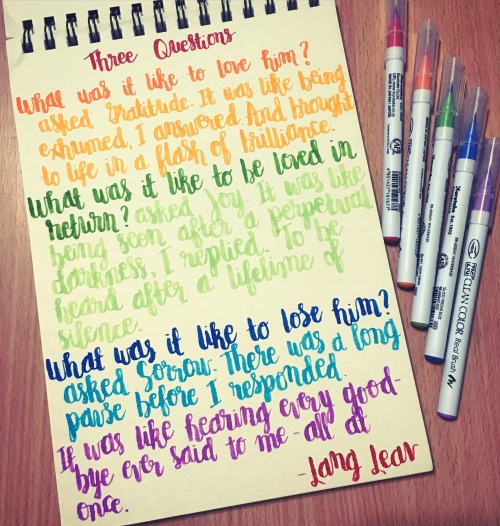 Three Questions
What was it like to love him?
asked Gratitude. It was like being
exhumed, I answered. And brought
to life in a flash of brilliance.
What was it like to be loved in
return? asked Joy. It was like
being seen after a perpetual
darkness, I replied. To be
heard after a lifetime of
silence.
What was it like to lose him?
asked Sorrow. There was a long
pause before I responded.
It was like hearing every good-
bye ever said to me - all at
once.
-Lang Leav
CLEAN COLOR Real Brush